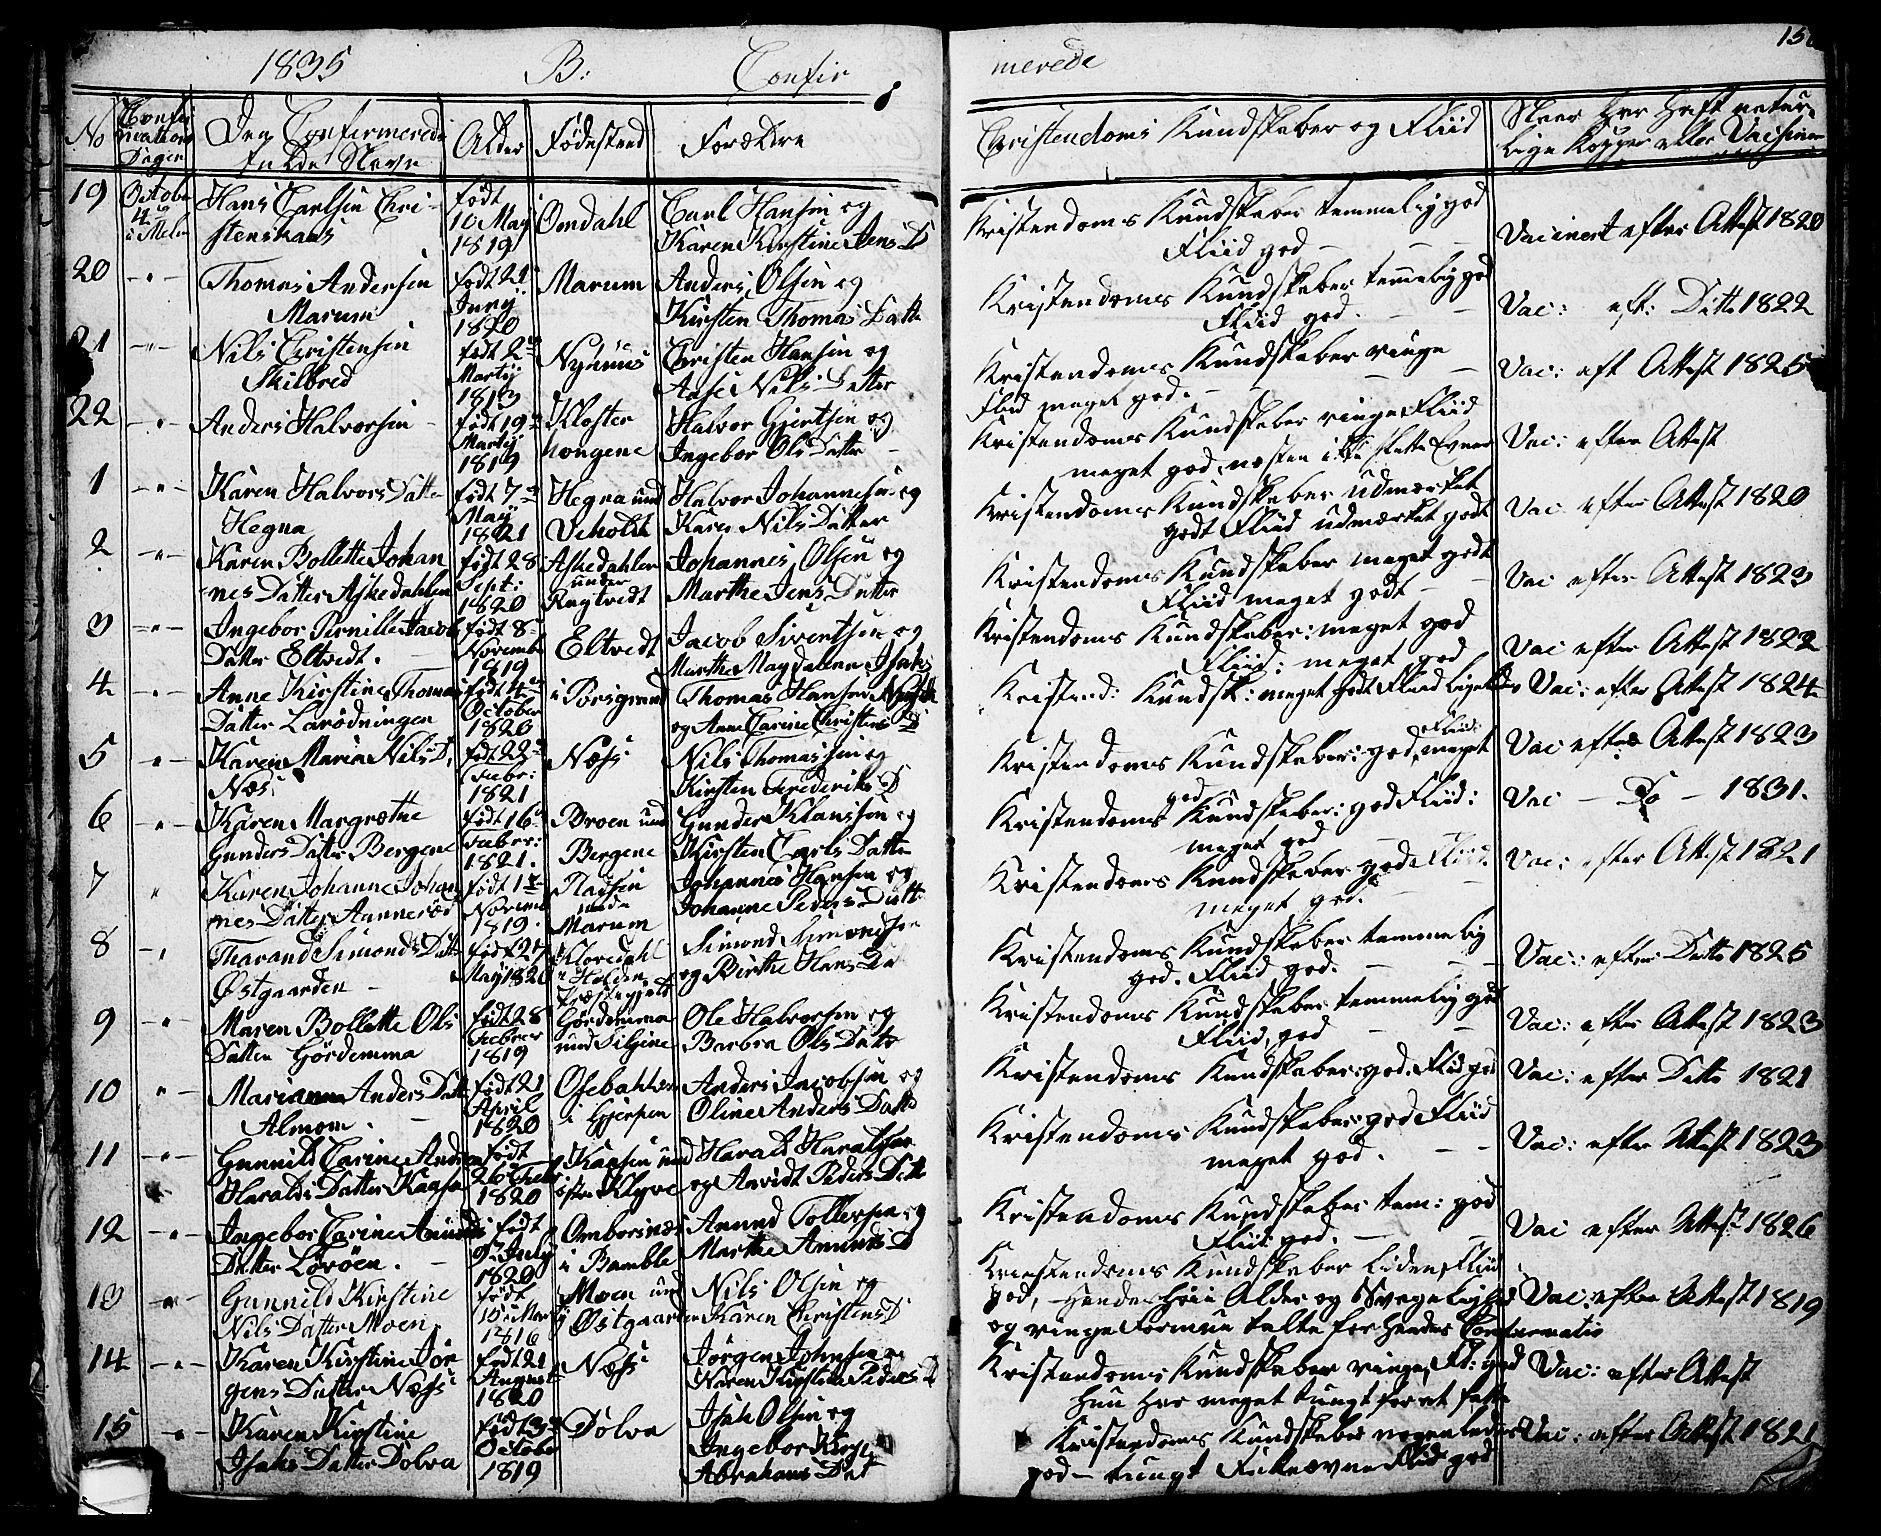 1835 B: Confir
merede 15
No
Confir
mations
Dagen
Den Confermerede
Fulde Navn
Alder
Fødested
Forældre
Cristendoms Kundskaber og Fliid
Naar har Haft natur
lige Kopper eller Vacsinen
19
Octobr
4
i Melu
Hans Carlsen Chri-
stenshaus
født
10 May
1819
Omdahl
Carl Hansen og
Karen Kirstine Jens D
Kristendoms Kundskaber temmelig god
Fliid god - - -
Vacinert efter Attest 1820
20
Thomas Andersen
Marum
født 21
Juny
1820
Marum
Anders Olsen og
Kirsten Thomas Datte
Kristendoms Kundskaber temelig god
Fliid god. - -
Vac: eft: Ditto 1822
21
Nils Christensen
Skilbred
født 2
Martij
1813
Christen Hansen og
Aase Nils Datter
Kristendoms Kundskaber ringe
Fliid meget god. - -
Vac: eft Attest 1825
22
Anders Halvorsen
født 19
Martij
1819
Kloster
hougene
Halvor Gjertsen og
Ingebor Ols Datter
Kristendoms Kundskaber ringe Fliid
meget god, næsten ikke slette Evner
Vac: efter Attest
1
Karen Halvors Datter
Hegna
født 7
May
1821
Hegna und
Ueholdt
Halvor Johannesen og
Karen Nils Datter
Kristendoms Kundskaber udmærket
godt Fliid udmærket godt
Vac efter Attest 1820
2
Karen Bollette Johan
nes Datter Askedahlen
født 28
Sept:
1820
Askedahlen
under
Rugtvedt
Johannes Olsen og
Marthe Jens Datter
Kristendoms Kundskaber meget godt
Fliid meget godt -
Vac efter Attest 1823
3
Ingebor Pernille Jacobs
Datter Eltvedt.
født 8
Novembr
1819
Eltvedt
Jacob Sivertsen og
Marthe Magdalene Isaks
Kristendoms Kundskaber: meget god
Fliid: meget god
Vac efter Attest 1822
4
Anne Kirstine Thomas
Datter Larødningen
født 4
October
1820
i Porsgrund
Thomas Hansen
og Anne Carine Christens D
Kristend: Kundsk: meget godt Fliid ligeledes
Vac: efter Attest 1824
5
Karen Maria Nils D.
Næs
født 22
Febr:
1821
Næss
Nils Thomassen og
Kirsten Frederiks D
Kristendoms Kundskaber: god, Fliid: meget
god
Vac efter Attest 1823
6
Karen Margrethe
Gunders Datter Bergene
født 16
Febr:
1821.
Broen und
Bergene
Gunder Klausson og
Kirsten Carls Datter
Kristendoms Kundskaber: god Fliid:
meget god
Vac - Do - 1831.
7
Karen Johanne Johan
nes Datter Aannerød
født 1
Novemb
1819.
unde
Marum
Johannes Hansen og
Johanne Peders Datt
Kristendoms Kundskaber god Fliid:
meget god.
Vac: efter Attest 1821
8
Tharand Simonds Datt
Østgaarden
født 27
May 1820
Kloredahl
i Holden
Præstegjeld
Simond Simondsen
og Birthe Hans Da
Kristendoms Kundskaber temmelig
god. Fliid god. - - -
Vac: efter Ditto 1825
9
Maren Bollette Ols
Datter Gørdemma
født 28
Febrer
1819
Gørdemma
und Siljine
Ole Halvorsen og
Barbra Ols Datte
Kristendoms Kundskaber temmelig god
Fliid, god - -
Vac: efter Attest 1823
10
Mariann Anders Datt
Almom.
født 21
April
1820
Osebakken
i Gjerpen
Anders Jacobsen og
Oline Anders Datte
Kristendoms Kundskaber: god. Fliid god
Vac: efter Ditto 1821
11
Gunnild Carine Andrea
Haralds Datter Kaasa
født
26 Feb
1820
Kaasen und
østre Klyve
Harald Haraldsen
og Anvidt Peders Datte
Kristendoms Kundskaber: god Fliid
meget god. - -
Vac: efter Attest 1823
12
Ingebor Carine Amunds
Datter Lørøen.
født
July
1820
Omborsnæs
i Bamble
Amund Tollefsen og
Marthe Amunds D
Kristendoms Kundskaber tem: god
Fliid god. - -
Vac efter Attest 1826
13
Gunnild Kirstine
Nils Datter Moen
født
10 Martij
1816
Moen und
Østgaarden
Nils Olsen og
Karen Christens D
Kristendoms Kundskaber liden, Fliid
god, - Hendes høie Alder og Svagelighed
og ringe Formue talte for hendes Confirmation
Vac: efter Attest 1819
14
Karen Kirstine Jør
gens Datter Næss
født 21
August
1820
Næss
Jørgen Johnsen og
Karen Kirstine Peders D
Kristendoms Kundskaber ringe, Fl: god
hun har meget tungt for at fatte
Vac: efter Attest
15
Karen Kirstine
Isaks Datter Dolva
født 3
October
1819
Dolva
Isak Olsen og
Ingebor Kirst
Abrahams Dat
Kristendoms Kundskaber nogenledes
god - tungt Fatteævne Fliid god
Vac: efter Attest 1821